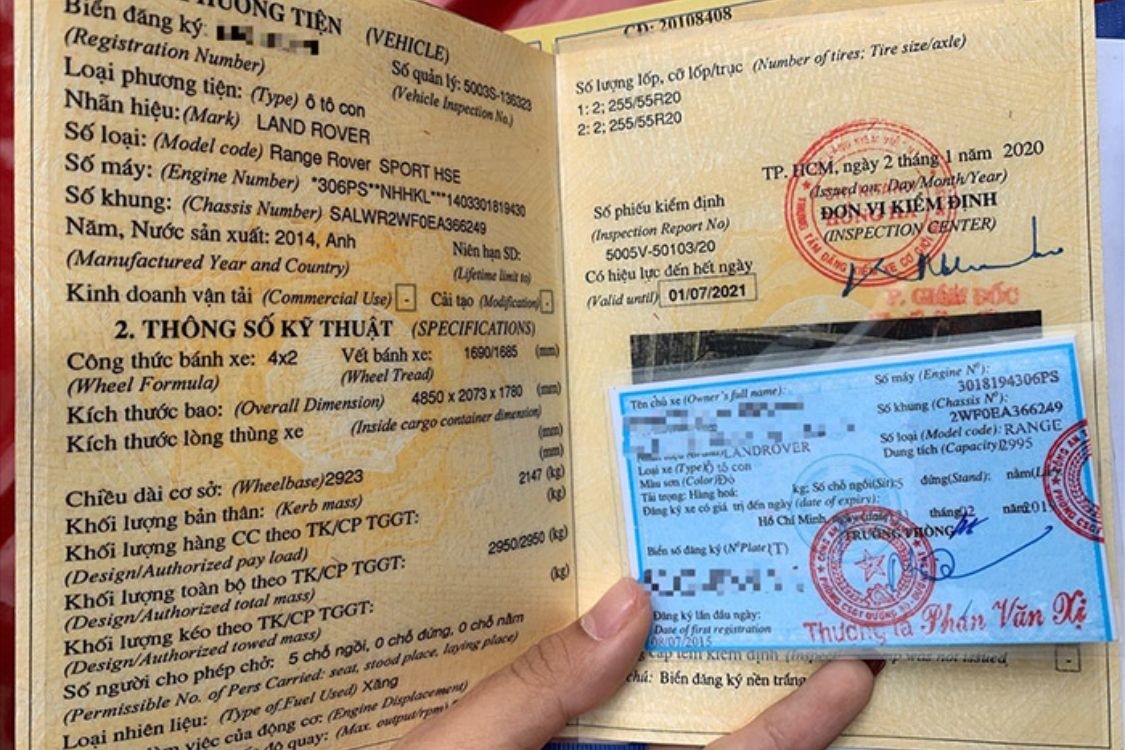 PHƯƠNG TIỆN (VEHICLE)
Biển đăng ký:
(Registration Number)
Số quản lý: 5003S-136323
(Vehicle Inspection No.)
Loại phương tiện: (Type) ô tô con
Nhãn hiệu: (Mark) LAND ROVER
Số loại: (Model code) Range Rover SPORT HSE
Số máy: (Engine Number) *306PS**NHHKL***1403301819430
Số khung: (Chassis Number) SALWR2WF0EA366249
Năm, Nước sản xuất: 2014, Anh
(Manufactured Year and Country)
Niên hạn SD:
(Lifetime limit to)
Kinh doanh vận tải (Commercial Use) - Cải tạo (Modification) -
2. THÔNG SỐ KỸ THUẬT (SPECIFICATIONS)
Công thức bánh xe: 4x2 Vết bánh xe: 1690/1685 (mm)
(Wheel Formula) (Wheel Tread)
Kích thước bao: (Overall Dimension) 4850 x 2073 x 1780 (mm)
Kích thước lòng thùng xe (Inside cargo container dimension)
(mm)
Chiều dài cơ sở: (Wheelbase) 2923 (mm)
Khối lượng bản thân: (Kerb mass) 2147 (kg)
Khối lượng hàng CC theo TK/CP TGGT: (kg)
(Design/Authorized pay load)
Khối lượng toàn bộ theo TK/CP TGGT: 2950/2950 (kg)
(Design/Authorized total mass)
Khối lượng kéo theo TK/CP TGGT: (kg)
(Design/Authorized towed mass)
Số người cho phép chở: 5 chỗ ngồi, 0 chỗ đứng, 0 chỗ nằm
(Permissible No. of Pers Carried: seat, stood place, laying place)
Loại nhiên liệu: (Type of Fuel Used) Xăng
làm việc của động cơ: (Engine Displacement)
độ quay: (Max. output/rpm)
CD: 20108408
Số lượng lốp, cỡ lốp/trục (Number of tires; Tire size/axle)
1: 2; 255/55R20
2: 2; 255/55R20
TP. HCM, ngày 2 tháng 1 năm 2020
(Issued on: Day/Month/Year)
Số phiếu kiểm định
ĐƠN VỊ KIỂM ĐỊNH
(Inspection Report No)
(INSPECTION CENTER)
5005V-50103/20
Có hiệu lực đến hết ngày
(Valid until) 01/07/2021
P. GIÁM ĐỐC
Tên chủ xe (Owner's full name):
Số máy (Engine Nº):
3018194306PS
Số khung (Chassis Nº):
2WF0EA366249
LANDROVER
Số loại (Model code): RANGE
Loại xe (Type) ô tô con
Dung tích (Capacity) 2995
Màu sơn (Color) Đỏ
Tải trọng: Hàng hoá: kg; Số chỗ ngồi (Sit): 5 đứng (Stand):
Đăng ký xe có giá trị đến ngày (date of expiry):
Hồ Chí Minh, ngày (date)
TRƯỞNG PHÒNG
Biển số đăng ký (Nº Plate)
Đăng ký lần đầu ngày:
Date of first registration
08/07/2015
Thượng tá Phan Văn Xị
Biển đăng ký nền trắng